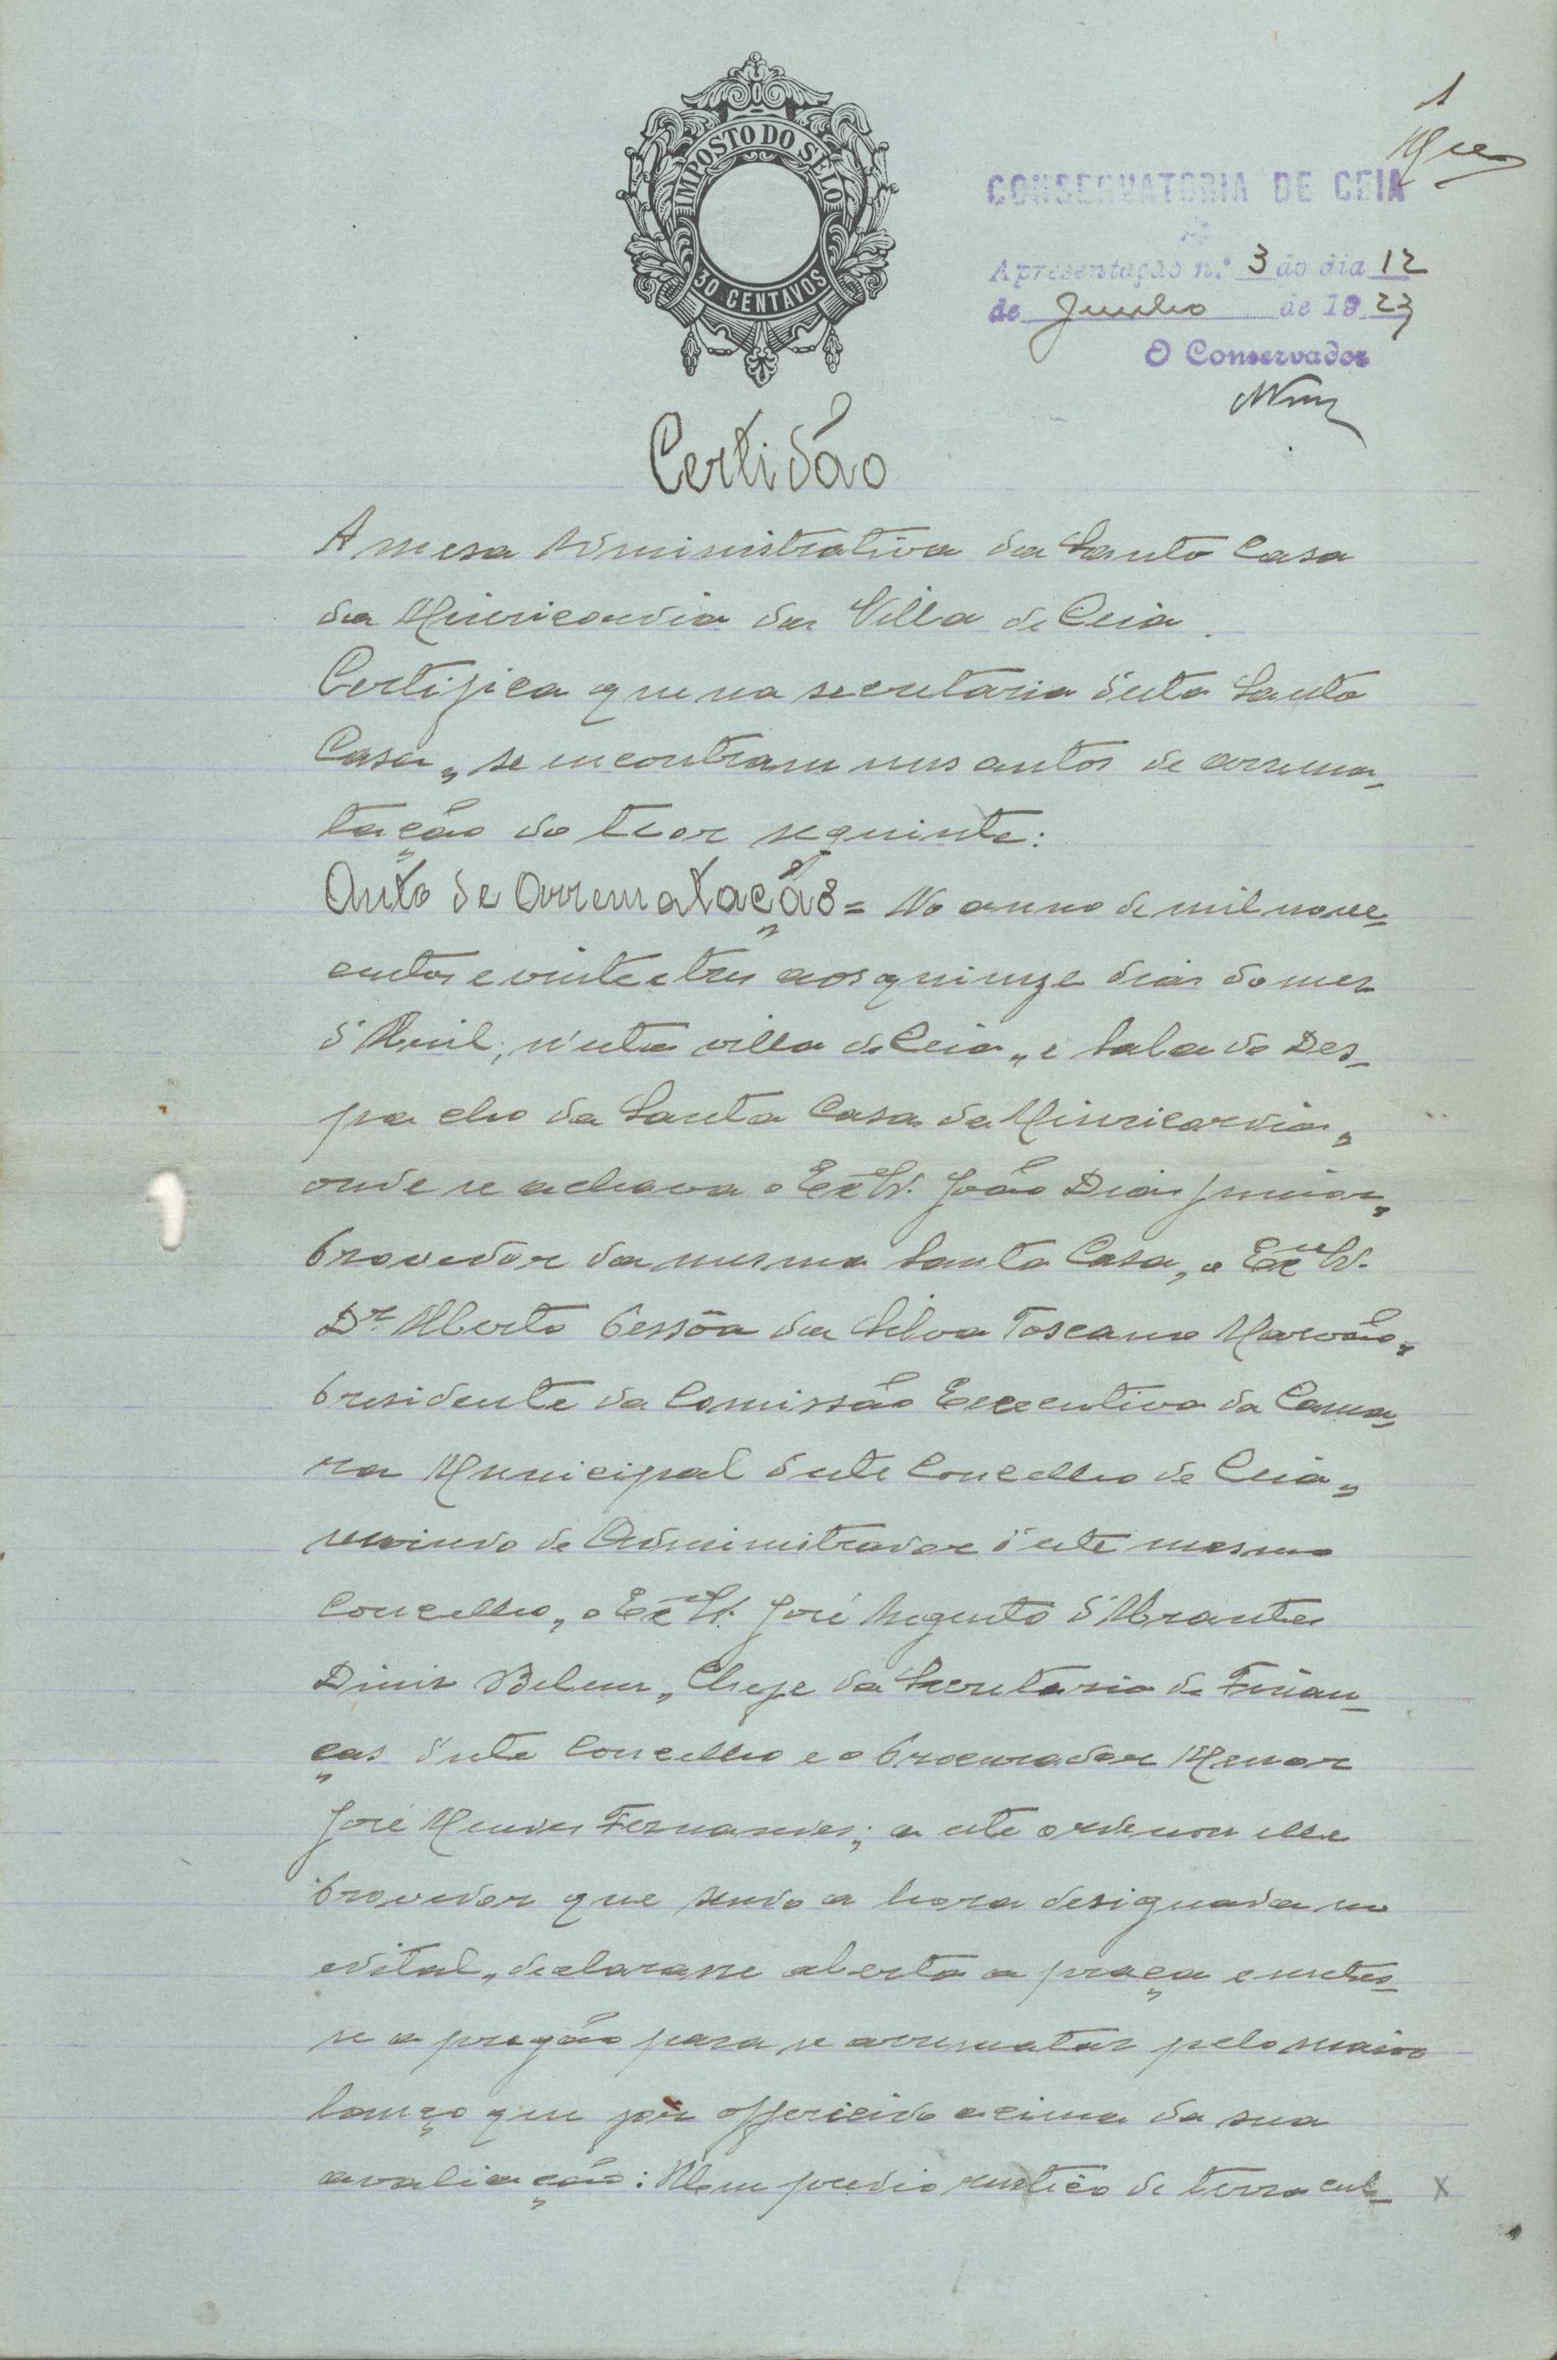 1
IMPOSTO DO SELO
30 CENTAVOS
CONSERVATORIA DE CEIA
Apresentação n.º 3 do dia 12
de Junho de 1923
O Conservador
Certidão
A mesa Administrativa da Santa Casa
da Misericordia da Villa de Ceia.
Certifica que na secretaria d'esta Santa
Casa, se encontram uns autos de arrema-
tação do teor seguinte:
Auto de Arrematação = No anno de mil nove-
centos e vinte e tres aos quinze dias do mez
d'Abril, n'esta villa de Ceia, e Sala do Des-
pacho da Santa Casa da Misericordia,
onde se achava o Exmº Sr. João Dias Junior,
Provedor da mesma Santa Casa, o Exmº Sr.
Dr. Alberto Pessôa da Silva Toscano Marvão,
Presidente da Comissão Executiva da Cama-
ra Municipal d'este Concelho de Ceia,
servindo de Administrador d'este mesmo
Concelho, o Exmº Sr. José Augusto d'Abrantes
Diniz Belem, Chefe da Secretaria de Finan-
ças d'este Concelho e o Procurador Menor
José Mendes Fernandes; a este ordenou elle
Provedor que sendo a hora designada no
edital, declarasse aberta a praça e metes-
se a pregão para se arrematar pelo maior
lanço que fôr offericido acima da sua
avaliação: Um predio rustico de terra cul- x